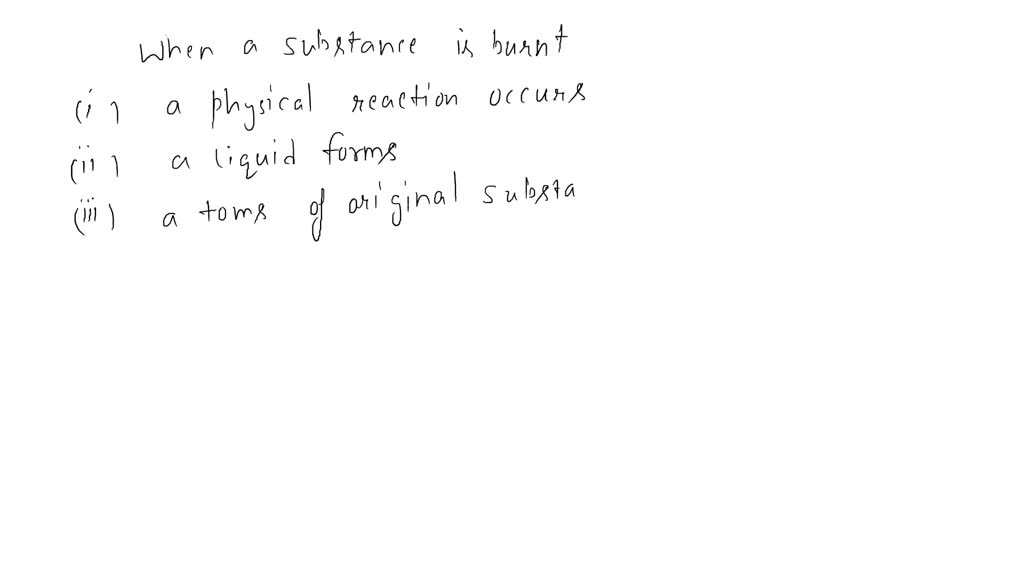 When a substance is burnt
(i) a physical reaction occurs
(ii) a liquid forms
(iii) atoms of original substa